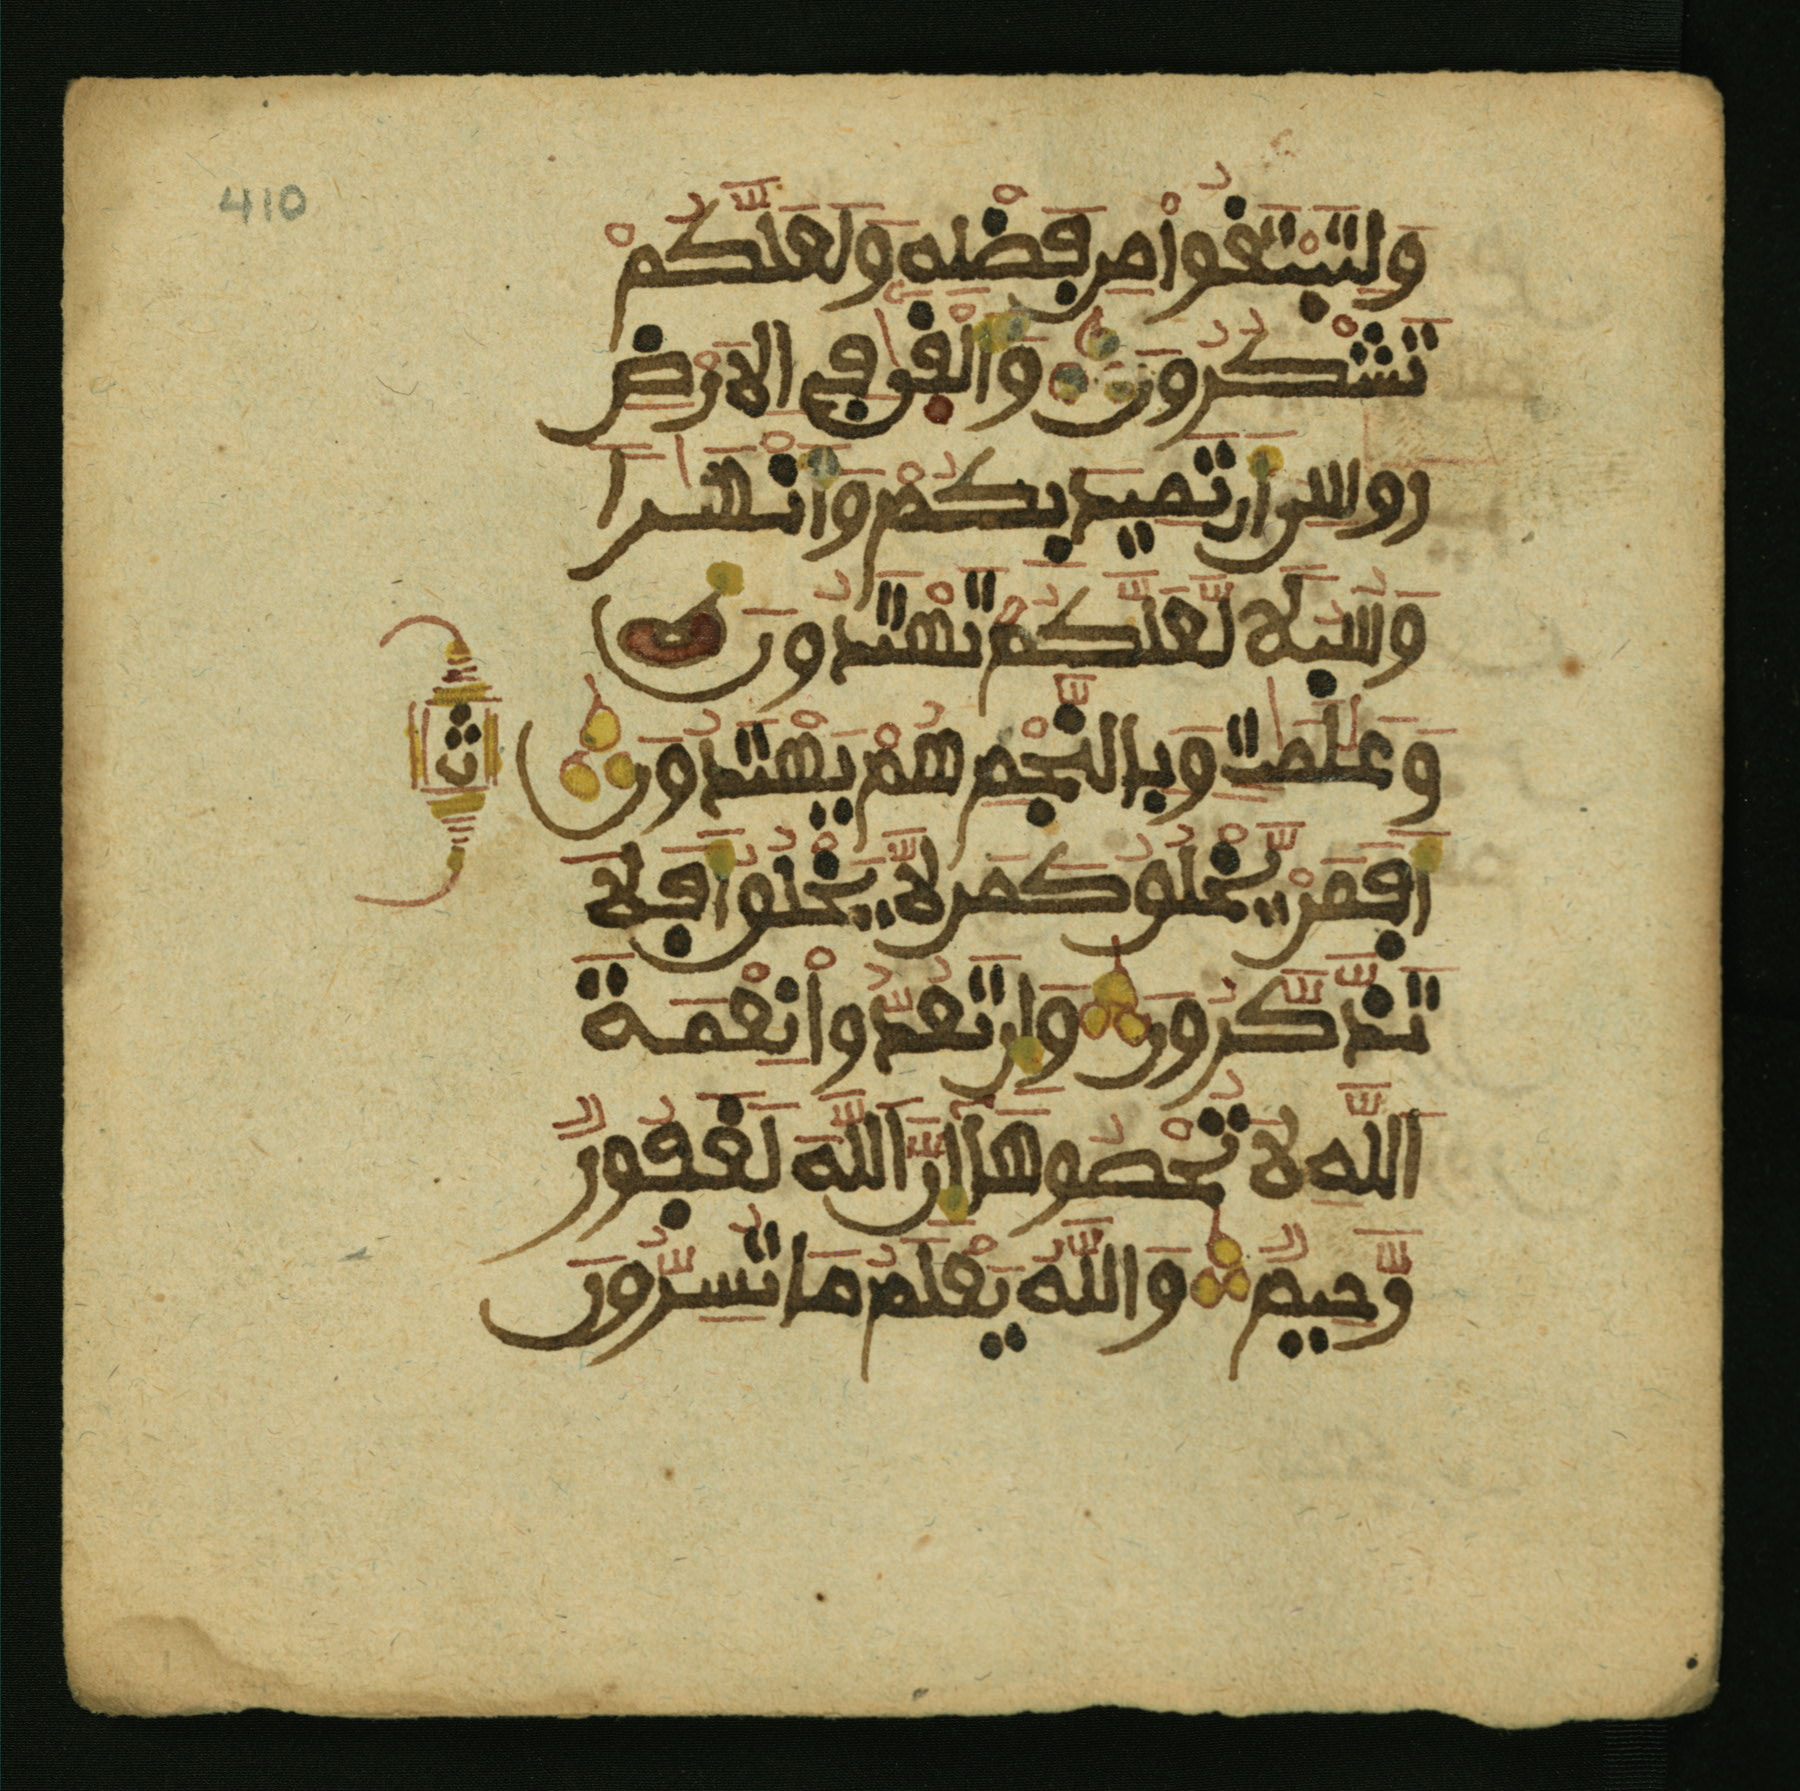 410
وَلِتَبْتَغُواْ مِن فَضْلِهِ وَلَعَلَّكُمْ
تَشْكُرُونَ وَأَلْقَىٰ فِي الَارْضِ
رَوَٰسِىَ أَن تَمِيدَ بِكُمْ وَأَنْهَٰرا
وَسُبُلا لَّعَلَّكُمْ تَهْتَدُونَ
وَعَلَٰمَٰتٍ وَبِالنَّجْمِ هُمْ يَهْتَدُونَ
ث
أَفَمَنْ يَّخْلُقُ كَمَن لَّا يَخْلُقُ أَفَلَا
تَذَّكَّرُونَ وَإِن تَعُدُّواْ نِعْمَةَ
اللَّهِ لَا تُحْصُوهَا إِنَّ اللَّهَ لَغَفُورٌ
رَّحِيمٌ وَاللَّهُ يَعْلَمُ مَا تُسِرُّونَ